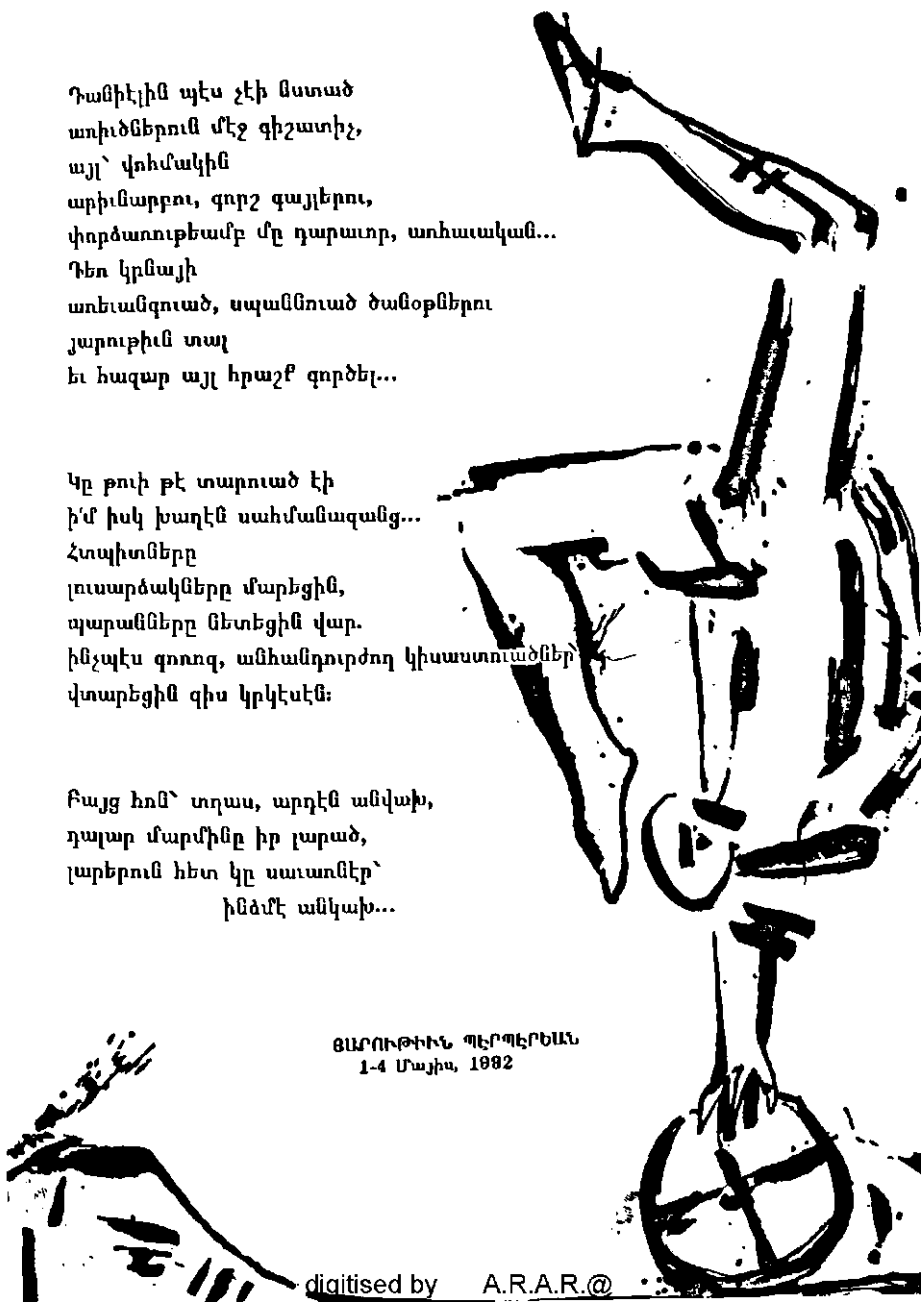 Դանիէլին պէս չէի նստած
առիւծներուն մէջ գիշատիչ,
այլ՝ վոհմակին
արիւնարբու, գորշ գայլերու,
փորձառութեամբ մը դարաւոր, առհաւական...
Դեռ կրնայի
առեւանգուած, սպաննուած ծանօթներու
յարութիւն տալ
եւ հազար այլ հրաշք գործել...
Կը թուի թէ տարուած էի
ի՛մ իսկ խաղէն սահմանազանց...
Հտպիտները
լուսարձակները մարեցին,
պարանները նետեցին վար.
ինչպէս գոռոզ, անհանդուրժող կիսաստուածներ՝
վտարեցին զիս կրկէսէն:
Բայց հոն՝ տղաս, արդէն անվախ,
դալար մարմինը իր լարած,
լարերուն հետ կը սաւառնէր՝
ինձմէ անկախ...
ՅԱՐՈՒԹԻՒՆ ՊԷՐՊԷՐԵԱՆ
1-4 Մայիս, 1992
digitised by A.R.A.R.@